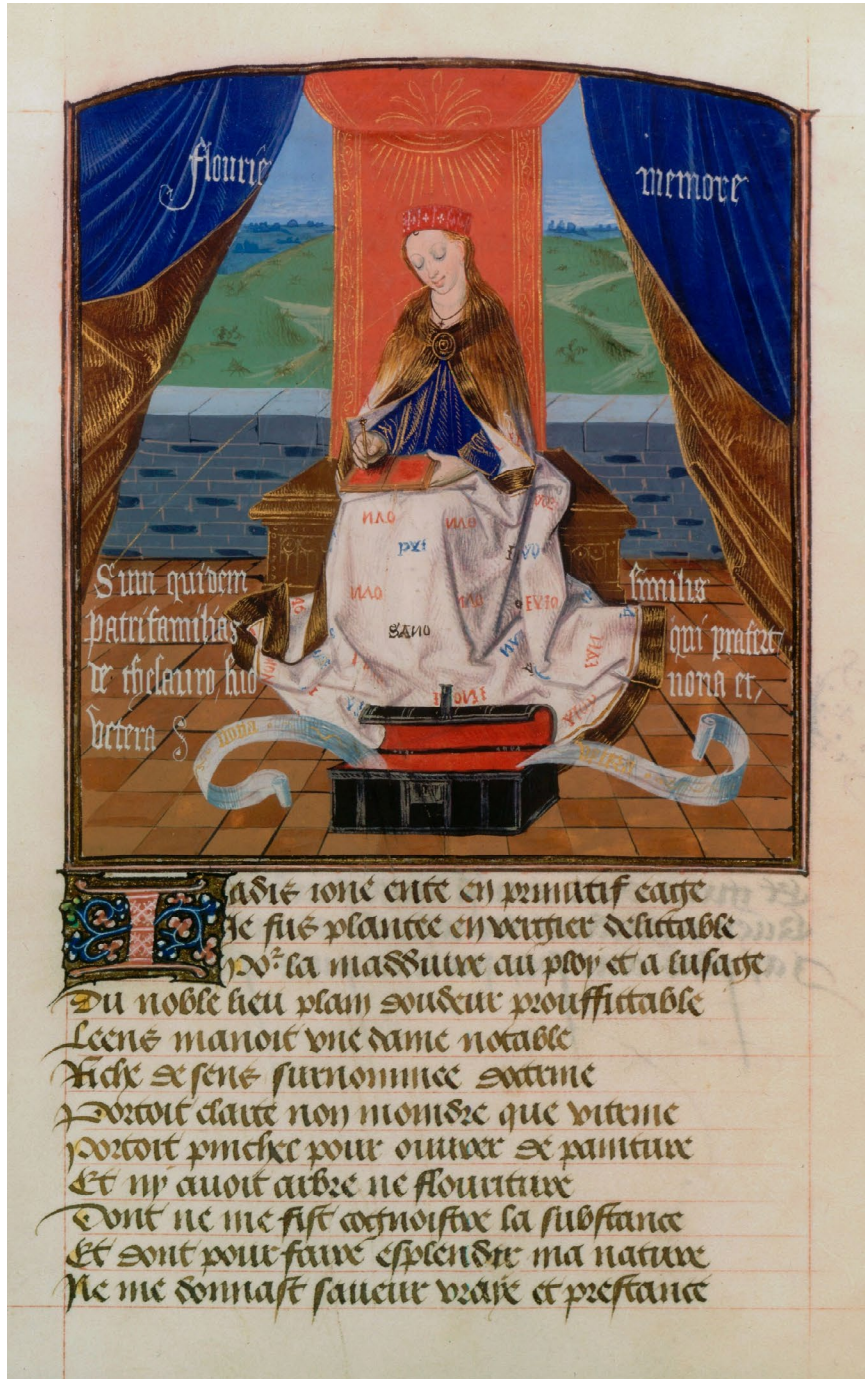 flourie
memore
Sum quidem
patrifamilias
de thesauro suo
vetera
similis
qui profert
noua et
Jadis ione ente en primitif eage
Je fus plantee en vergier delittable
Po2 la madduire au ploy et a lusage
Du noble lieu plain doudeur prouffittable
Leens manoit vne dame notable
Riche de sens surnommee doctrine
Portoit clarte non moindre que vitrine
Portoit pinchel pour ouurer de painture
Et ny auoit arbre ne flouriture
Dont ne me fist cognoistre la substance
Et dont pour faire esplendir ma nature
Ne me donnast saueur vraye et prestance